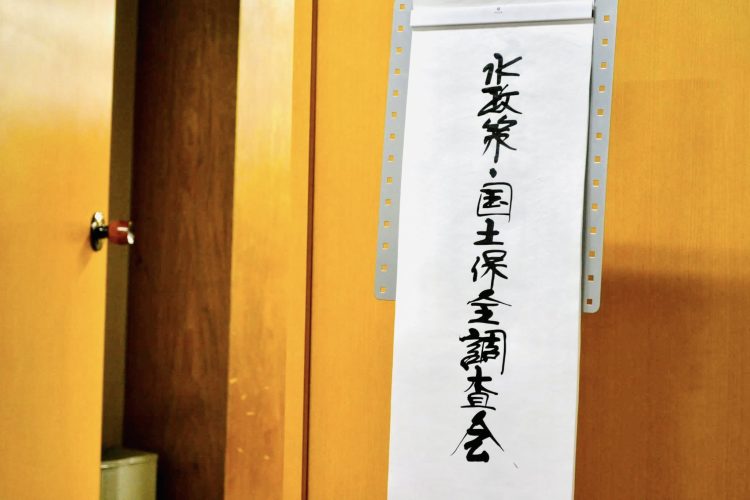 水政策・国土保全調査会